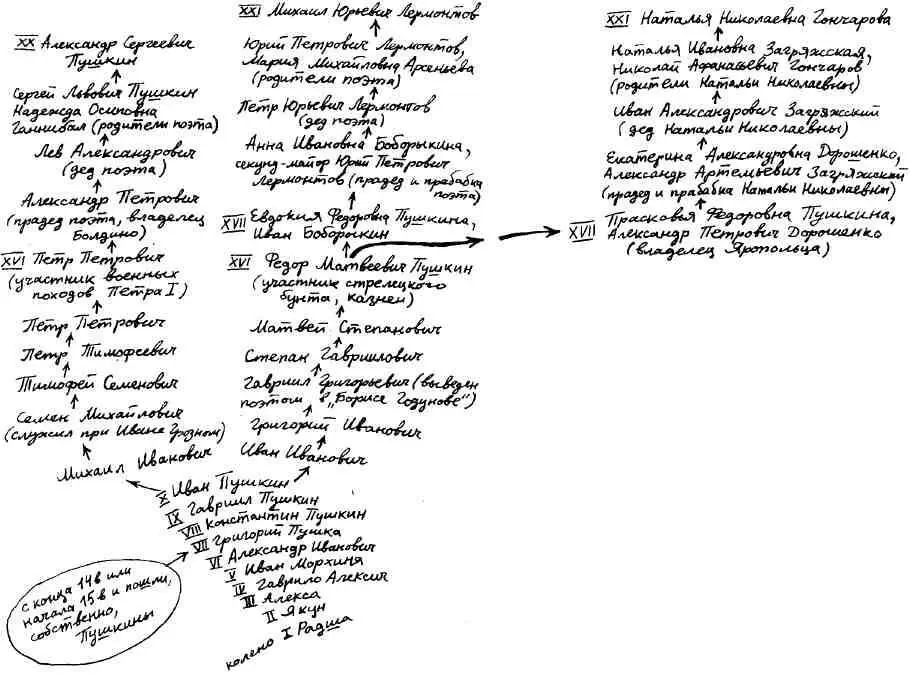 XX Александр Сергеевич
Пушкин
Сергей Львович Пушкин
Надежда Осиповна
Ганнибал (родители поэта)
Лев Александрович
(дед поэта)
Александр Петрович
(прадед поэта, владелец
Болдино)
XVI Петр Петрович
(участник военных
походов Петра I)
Петр Петрович
Петр Тимофеевич
Тимофей Семенович
Семен Михайлович
(служил при Иване Грозном)
Михаил Иванович
XXI Михаил Юрьевич Лермонтов
Юрий Петрович Лермонтов,
Мария Михайловна Арсеньева
(родители поэта)
Петр Юрьевич Лермонтов
(дед поэта)
Анна Ивановна Боборыкина,
секунд-майор Юрий Петрович
Лермонтов (прадед и прабабка
поэта)
XVII Евдокия Федоровна Пушкина,
Иван Боборыкин
XVI Федор Матвеевич Пушкин
(участник стрелецкого
бунта, казнен)
Матвей Степанович
Степан Гавриилович
Гавриил Григорьевич (выведен
поэтом в „Борисе Годунове“)
Григорий Иванович
Иван Иванович
XXI Наталья Николаевна Гончарова
Наталья Ивановна Загряжская,
Николай Афанасьевич Гончаров
(родители Натальи Николаевны)
Иван Александрович Загряжский
(дед Натальи Николаевны)
Екатерина Александровна Дорошенко,
Александр Артемьевич Загряжский
(прадед и прабабка Натальи Николаевны)
XVII Прасковья Федоровна Пушкина,
Александр Петрович Дорошенко
(владелец Яропольца)
X Иван Пушкин
IX Гавриил Пушкин
VIII Константин Пушкин
VII Григорий Пушка
VI Александр Иванович
V Иван Морхиня
IV Гаврило Алексич
III Алекса
II Якун
колено I Радша
с конца 14в или
начала 15в и пошли,
собственно,
Пушкины